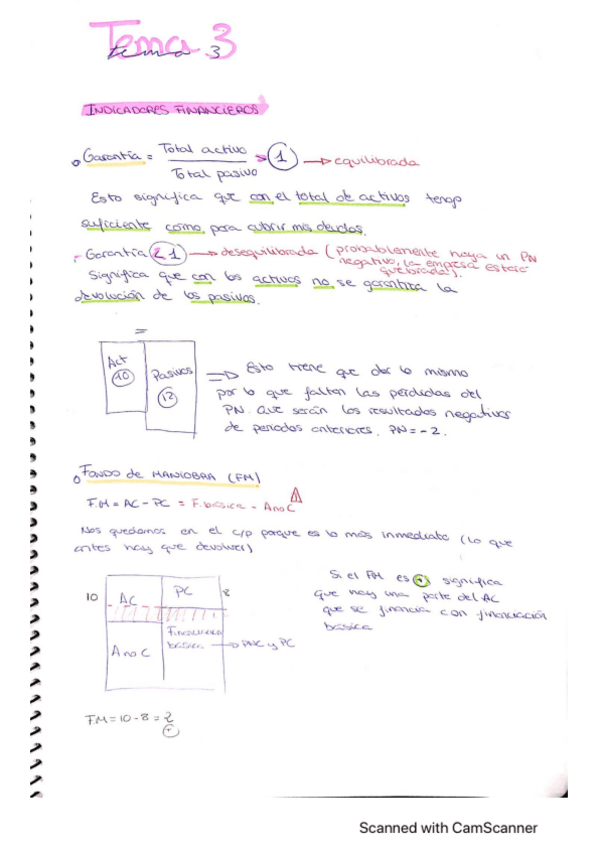 Tema 3
tema 3
INDICADORES FINANCIEROS
Garantía = Total activo / Total pasivo > 1 → equilibrada
Esto significa que con el total de activos tengo
suficiente como para cubrir mis deudas.
- Garantía < 1 → desequilibrada (probablemente haya un PN
negativo, la empresa estará
quebrada).
Significa que con los activos no se garantiza la
devolución de los pasivos.
=
Act
10
Pasivos
12
⇒ Esto tiene que dar lo mismo
por lo que faltan las pérdidas del
PN. Que serán los resultados negativos
de periodos anteriores. PN = -2.
FONDO DE MANIOBRA (FM)
F.M = AC - PC = F. básica - AnoC
Nos quedamos en el c/p porque es lo más inmediato (lo que
antes hay que devolver)
10 AC PC 8
AnoC
Financiera
básica → PNC y PC
Si el FM es + significa
que hay una parte del AC
que se financia con financiación
básica
F.M = 10 - 8 = 2
+
Scanned with CamScanner